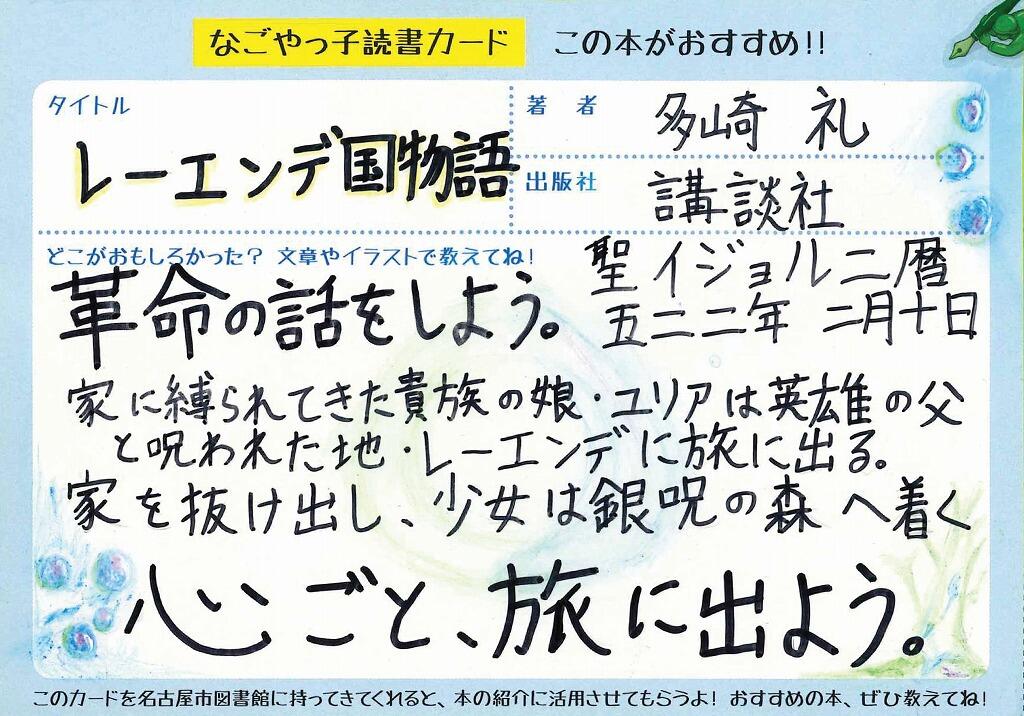 なごやっ子読書カード この本がおすすめ!!
タイトル
レーエンデ国物語
著者
多崎 礼
出版社
講談社
どこがおもしろかった? 文章やイラストで教えてね!
革命の話をしよう。
聖イジョルニ暦
五二二年 二月十日
家に縛られてきた貴族の娘・ユリアは英雄の父
と呪われた地・レーエンデに旅に出る。
家を抜け出し、少女は銀呪の森へ着く
心ごと、旅に出よう。
このカードを名古屋市図書館に持ってきてくれると、本の紹介に活用させてもらうよ! おすすめの本、ぜひ教えてね!